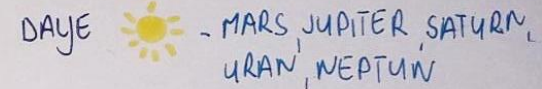 DALJE - MARS, JUPITER, SATURN,
URAN, NEPTUN